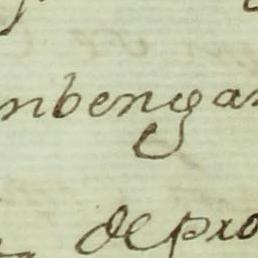 nbengan
depro